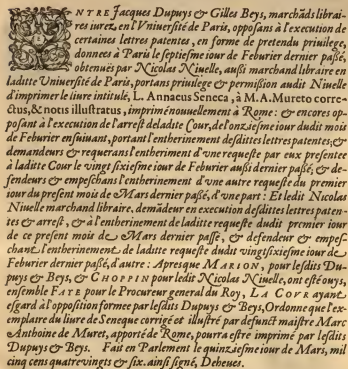 ENTRE Jacques Dupuys & Gilles Beys, marchāds librai-
res iurez en l'Vniuersité de Paris, opposans à l'execution de
certaines lettres patentes, en forme de pretendu priuilege,
donnees à Paris le septiesme iour de Feburier dernier passé,
obtenuës par Nicolas Niuelle, aussi marchand libraire en
laditte Vniuersité de Paris, portans priuilege & permission audit Niuelle
d'imprimer le liure intitulé, L. Annaeus Seneca, à M.A.Mureto corre-
ctus, & notis illustratus, imprimé nouuellement à Rome: & encores op-
posant à l'execution de l'arrest de laditte Cour, de l'onziesme iour dudit mois
de Feburier ensuiuant, portant l'entherinement desdittes lettres patentes, &
demandeurs & requerans l'entheriment d'vne requeste par eux presentee
à laditte Cour le vingt sixiesme iour de Feburier aussi dernier passé, & de-
fendeurs & empeschans l'entherinement d'vne autre requeste du premier
iour du present mois de Mars dernier passé, d'vne part: Et ledit Nicolas
Niuelle marchand libraire, demādeur en execution desdittes lettres paten-
tes & arrest, & à l'entherinement de laditte requeste dudit premier iour
de ce present mois de Mars dernier passé, & defendeur & empes-
chant l'entherinement de laditte requeste dudit vingtsixiesme iour de
Feburier dernier passé, d'autre: Apres que MARION, pour lesdits Du-
puys & Beys, & CHOPPIN pour ledit Nicolas Niuelle, ont esté ouys,
ensemble FAYE pour le Procureur general du Roy, LA COVR ayant
esgard à l'opposition formee par lesdits Dupuys & Beys, Ordonne que l'ex-
emplaire du liure de Seneque corrigé & illustré par defunct maistre Marc
Anthoine de Muret, apporté de Rome, pourra estre imprimé par lesdits
Dupuys & Beys. Fait en Parlement le quinziesme iour de Mars, mil
cinq cens quatre vingts & six. ainsi signé, Deheues.